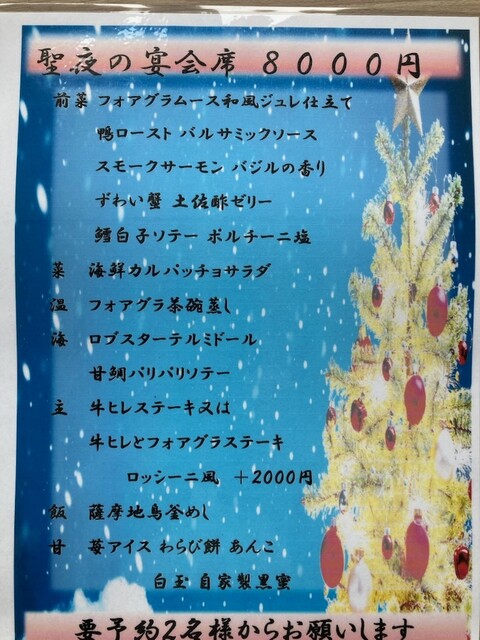 聖夜の宴会席 8000円
前菜 フォアグラムース和風ジュレ仕立て
鴨ロースト バルサミックソース
スモークサーモン バジルの香り
ずわい蟹 土佐酢ゼリー
鱈白子ソテー ポルチーニ塩
菜 海鮮カルパッチョサラダ
温 フォアグラ茶碗蒸し
海 ロブスターテルミドール
甘鯛パリパリソテー
主 牛ヒレステーキ又は
牛ヒレとフォアグラステーキ
ロッシーニ風 +2000円
飯 薩摩地鳥釜めし
甘 苺アイス わらび餅 あんこ
白玉 自家製黒蜜
要予約2名様からお願いします